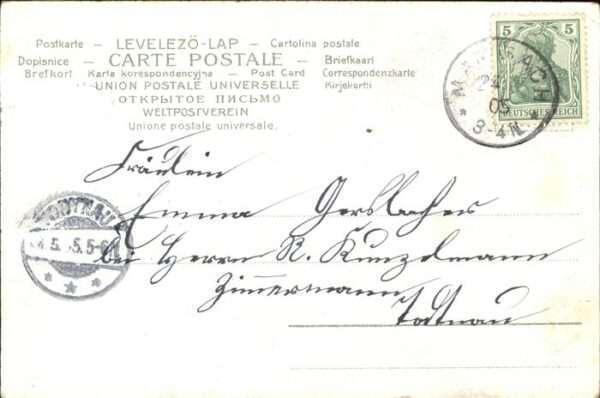 Postkarte – LEVELEZÖ-LAP – Cartolina postale
Dopisnice – CARTE POSTALE – Briefkaart
Brefkort Karta korespondencyjna – Post Card Correspondenzkarte
UNION POSTALE UNIVERSELLE Kirjekortti
ОТКРЫТОЕ ПИСЬМО
WELTPOSTVEREIN
Unione postale universale.
5 5
DEUTSCHES REICH
05
3-4N
Fräulein
Emma Gerslacher
bei Herrn R. Kunzelmann
Zimmermann
Todtnau
TODTNAU
5. 5-6